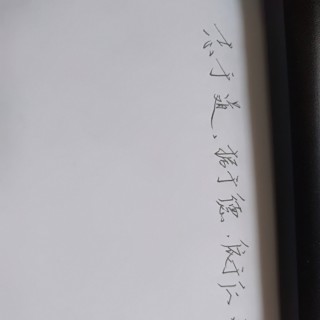 志于道,据于德.依于仁